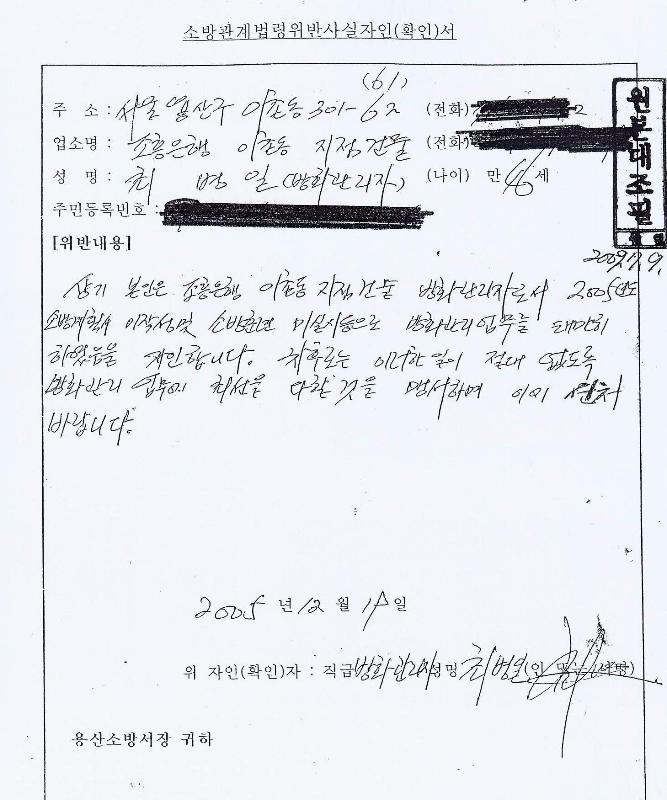 소방관계법령위반사실자인(확인)서
(61)
주 소 : 서울 용산구 이촌동 301-62 (전화)
업소명 : 조흥은행 이촌동 지점 건물 (전화)
성 명 : 최 병 일 (방화관리자) (나이) 만 46 세
주민등록번호 :
원본대조필
[위반내용]
2009. 7. 9.
상기 본인은 조흥은행 이촌동 지점 건물 방화관리자로서 2005년도
소방계획서 미작성 및 소방훈련 미실시등으로 방화관리 업무를 태만히
하였음을 자인합니다. 차후로는 이러한 일이 절대 없도록
방화관리 업무에 최선을 다할 것을 맹서하며 이에 선처
바랍니다.
2005 년 12 월 일
위 자인(확인)자 : 직급 방화관리자 성명 최병일 (인 또는
용산소방서장 귀하